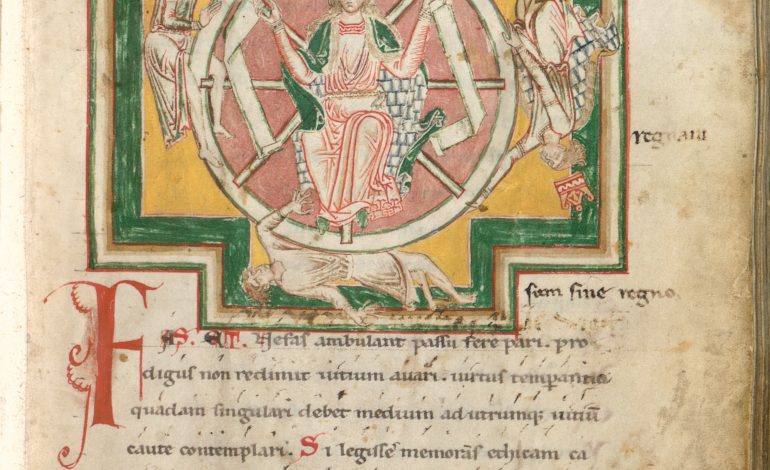 regnaui
sum sine regno.
FAS. ET. Nefas ambulant passu fere pari. pro
digus non redimit uitium auari. uirtus temperantia
quadam singulari debet medium ad utrumq; uitiū
caute contemplari. Si legisse memorās ethicam ca